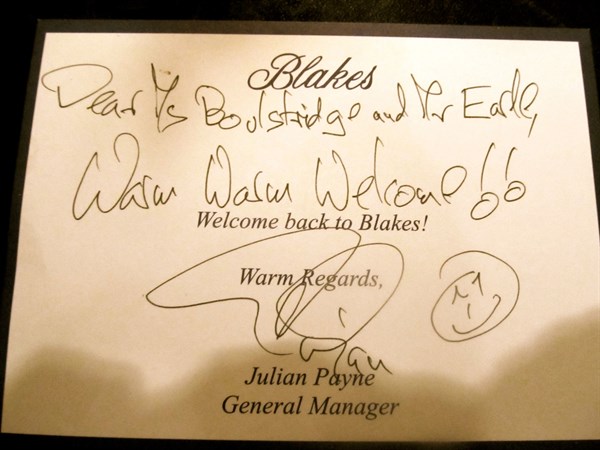 Blakes
Dear Ms Boulstridge and Mr Earle,
Warm Warm Welcome!!
Welcome back to Blakes!
Warm Regards,
Julian Payne
General Manager